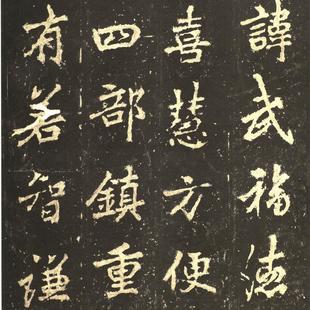 諱武福德
喜慧方便
四部鎮重
有若智謙